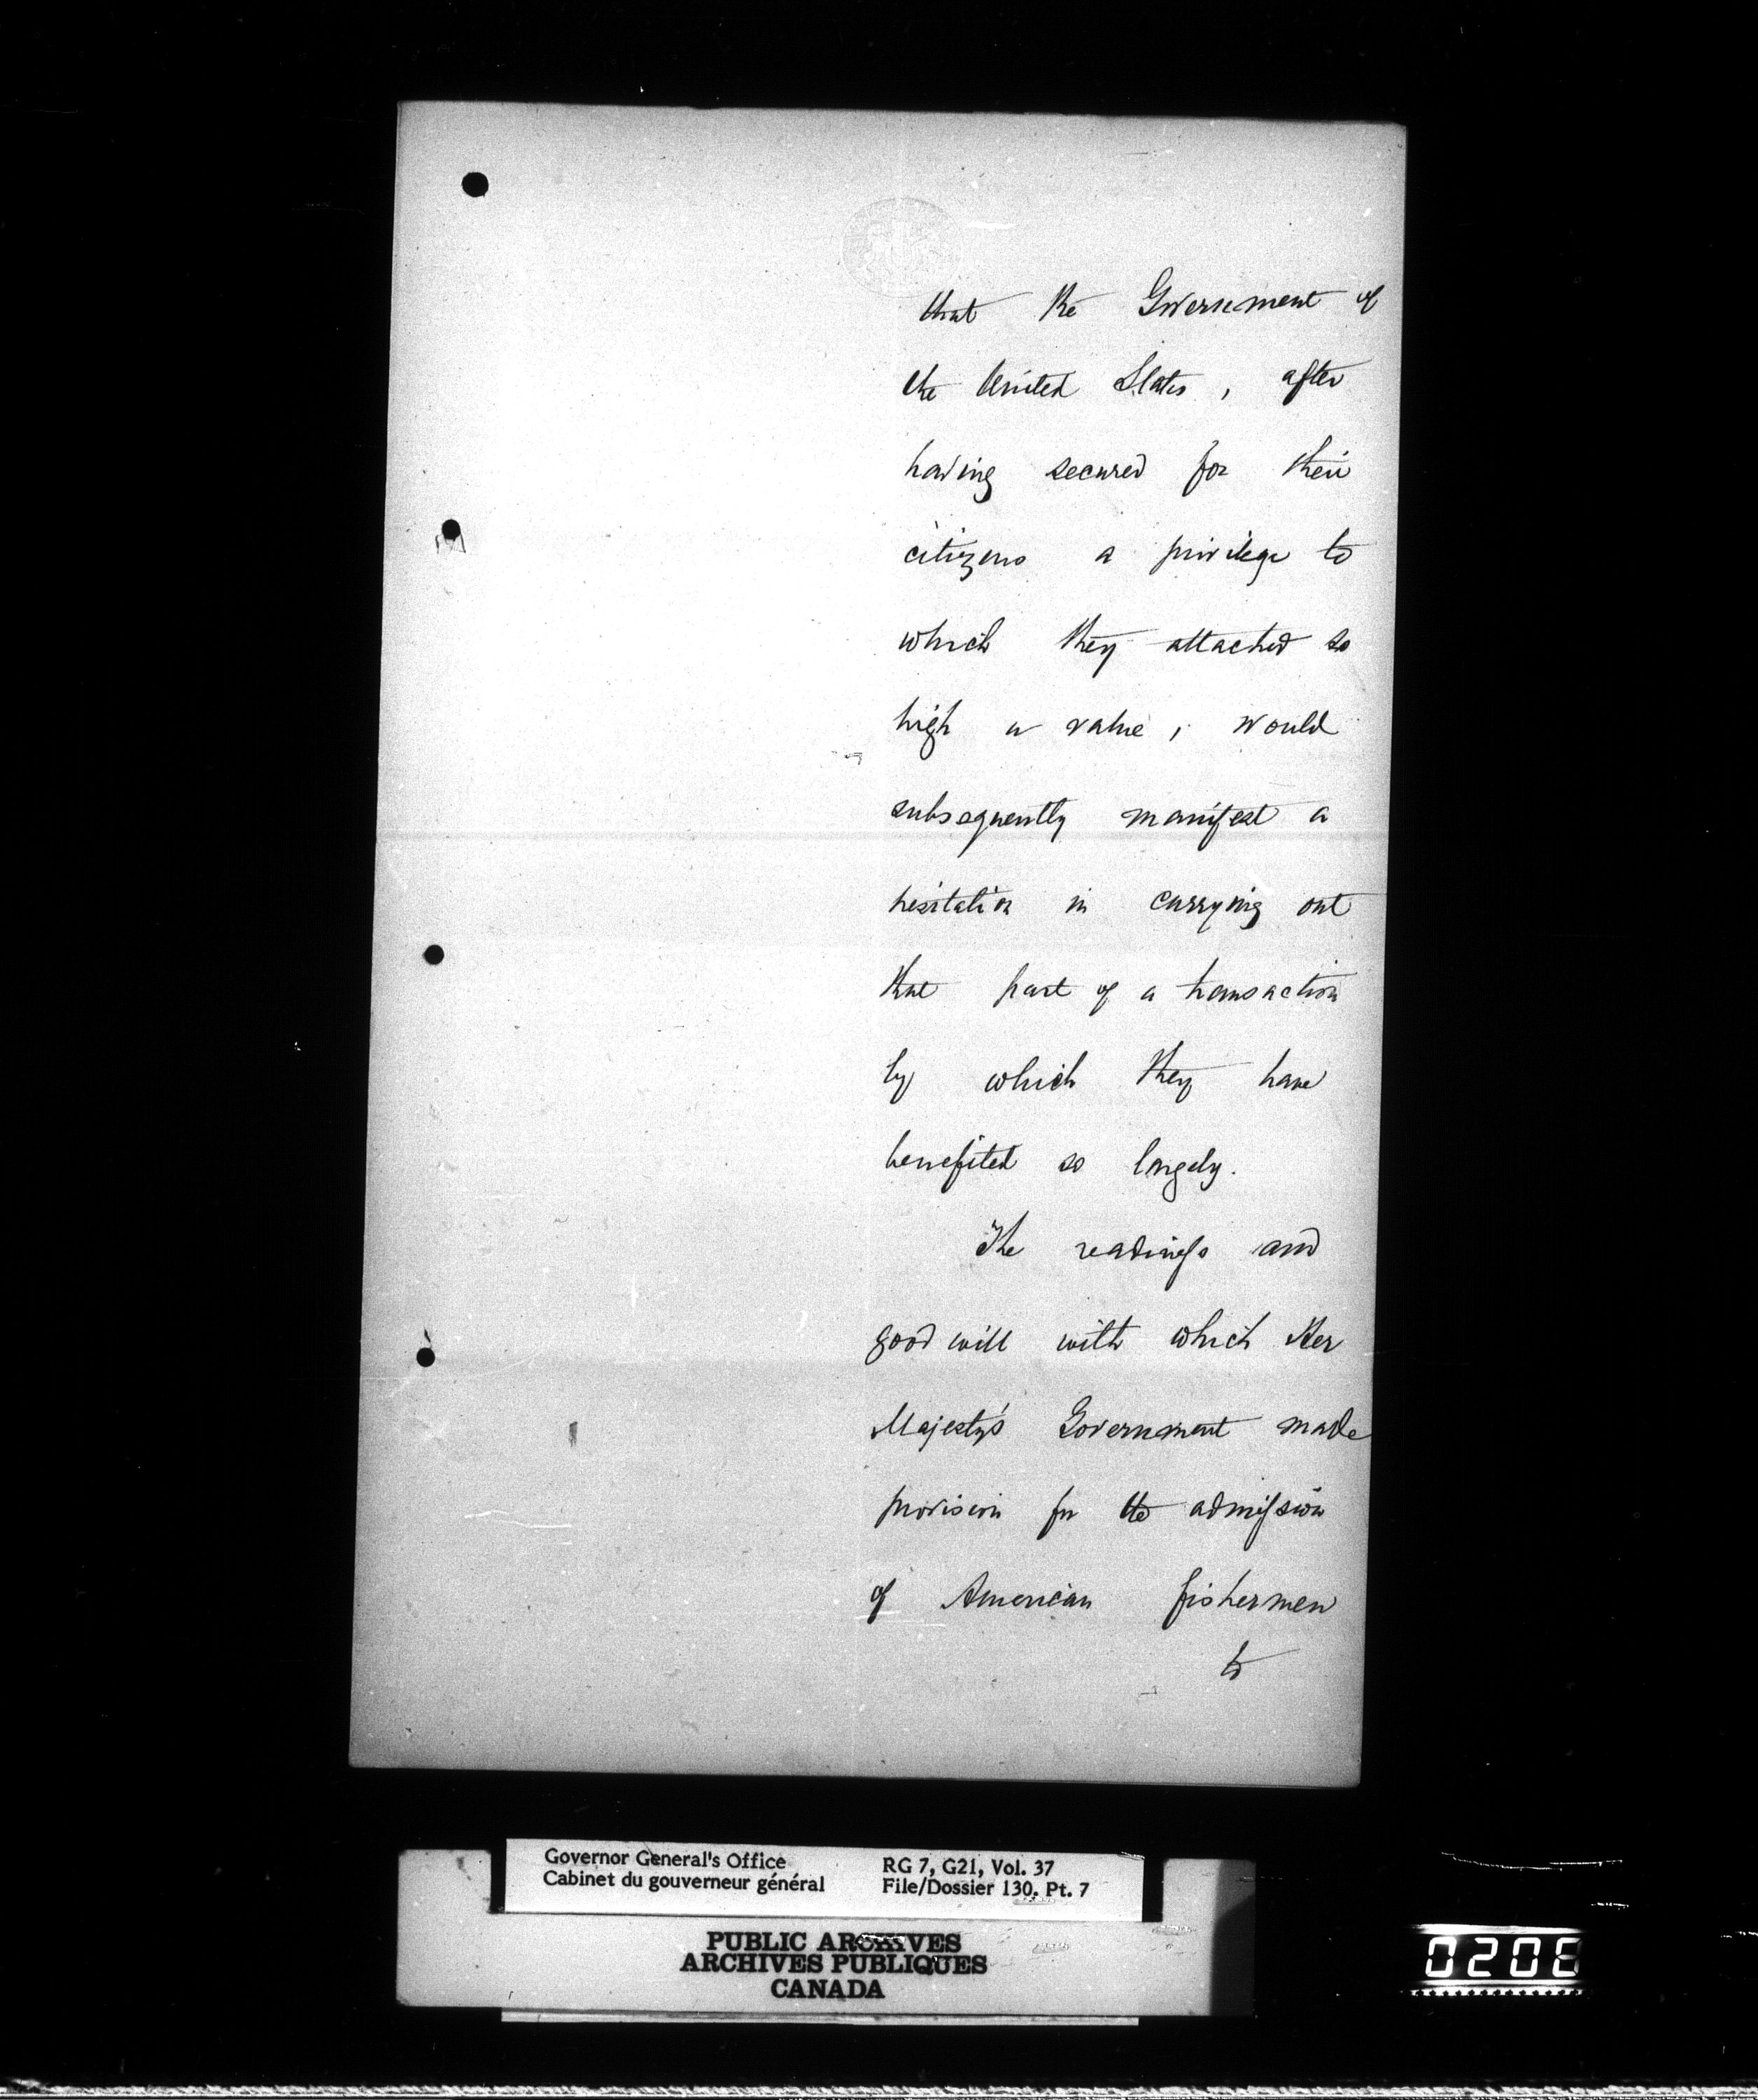 that the Government of
the United States, after
having secured for their
citizens a privilege to
which they attached so
high a value, would
subsequently manifest a
hesitation in carrying out
that part of a transaction
by which they have
benefited so largely.
The readiness and
good will with which Her
Majesty's Government made
provision for the admission
of American fishermen
to
Governor General's Office
Cabinet du gouverneur général
RG 7, G21, Vol. 37
File/Dossier 130, Pt. 7
PUBLIC ARCHIVES
ARCHIVES PUBLIQUES
CANADA